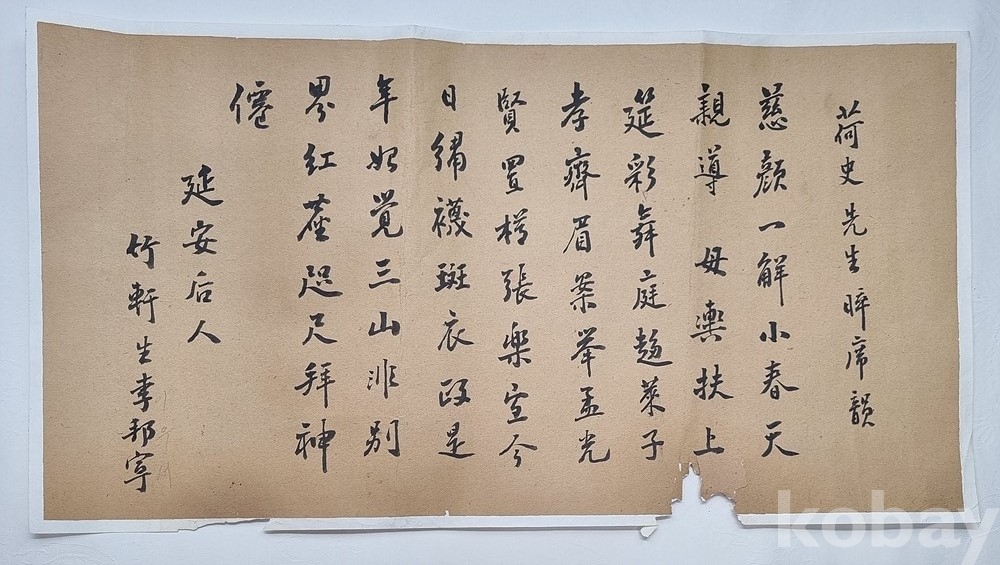 荷史先生晬席韻
慈顔一解小春天
親導 母輿扶上
筵彩舞庭趨萊子
孝齊眉案举孟光
賢置樽張樂宜今
日繡襪斑衣是
年始覺三山非別
界紅塵咫尺拜神
僊
延安后人
竹軒生李邦寧
kobay